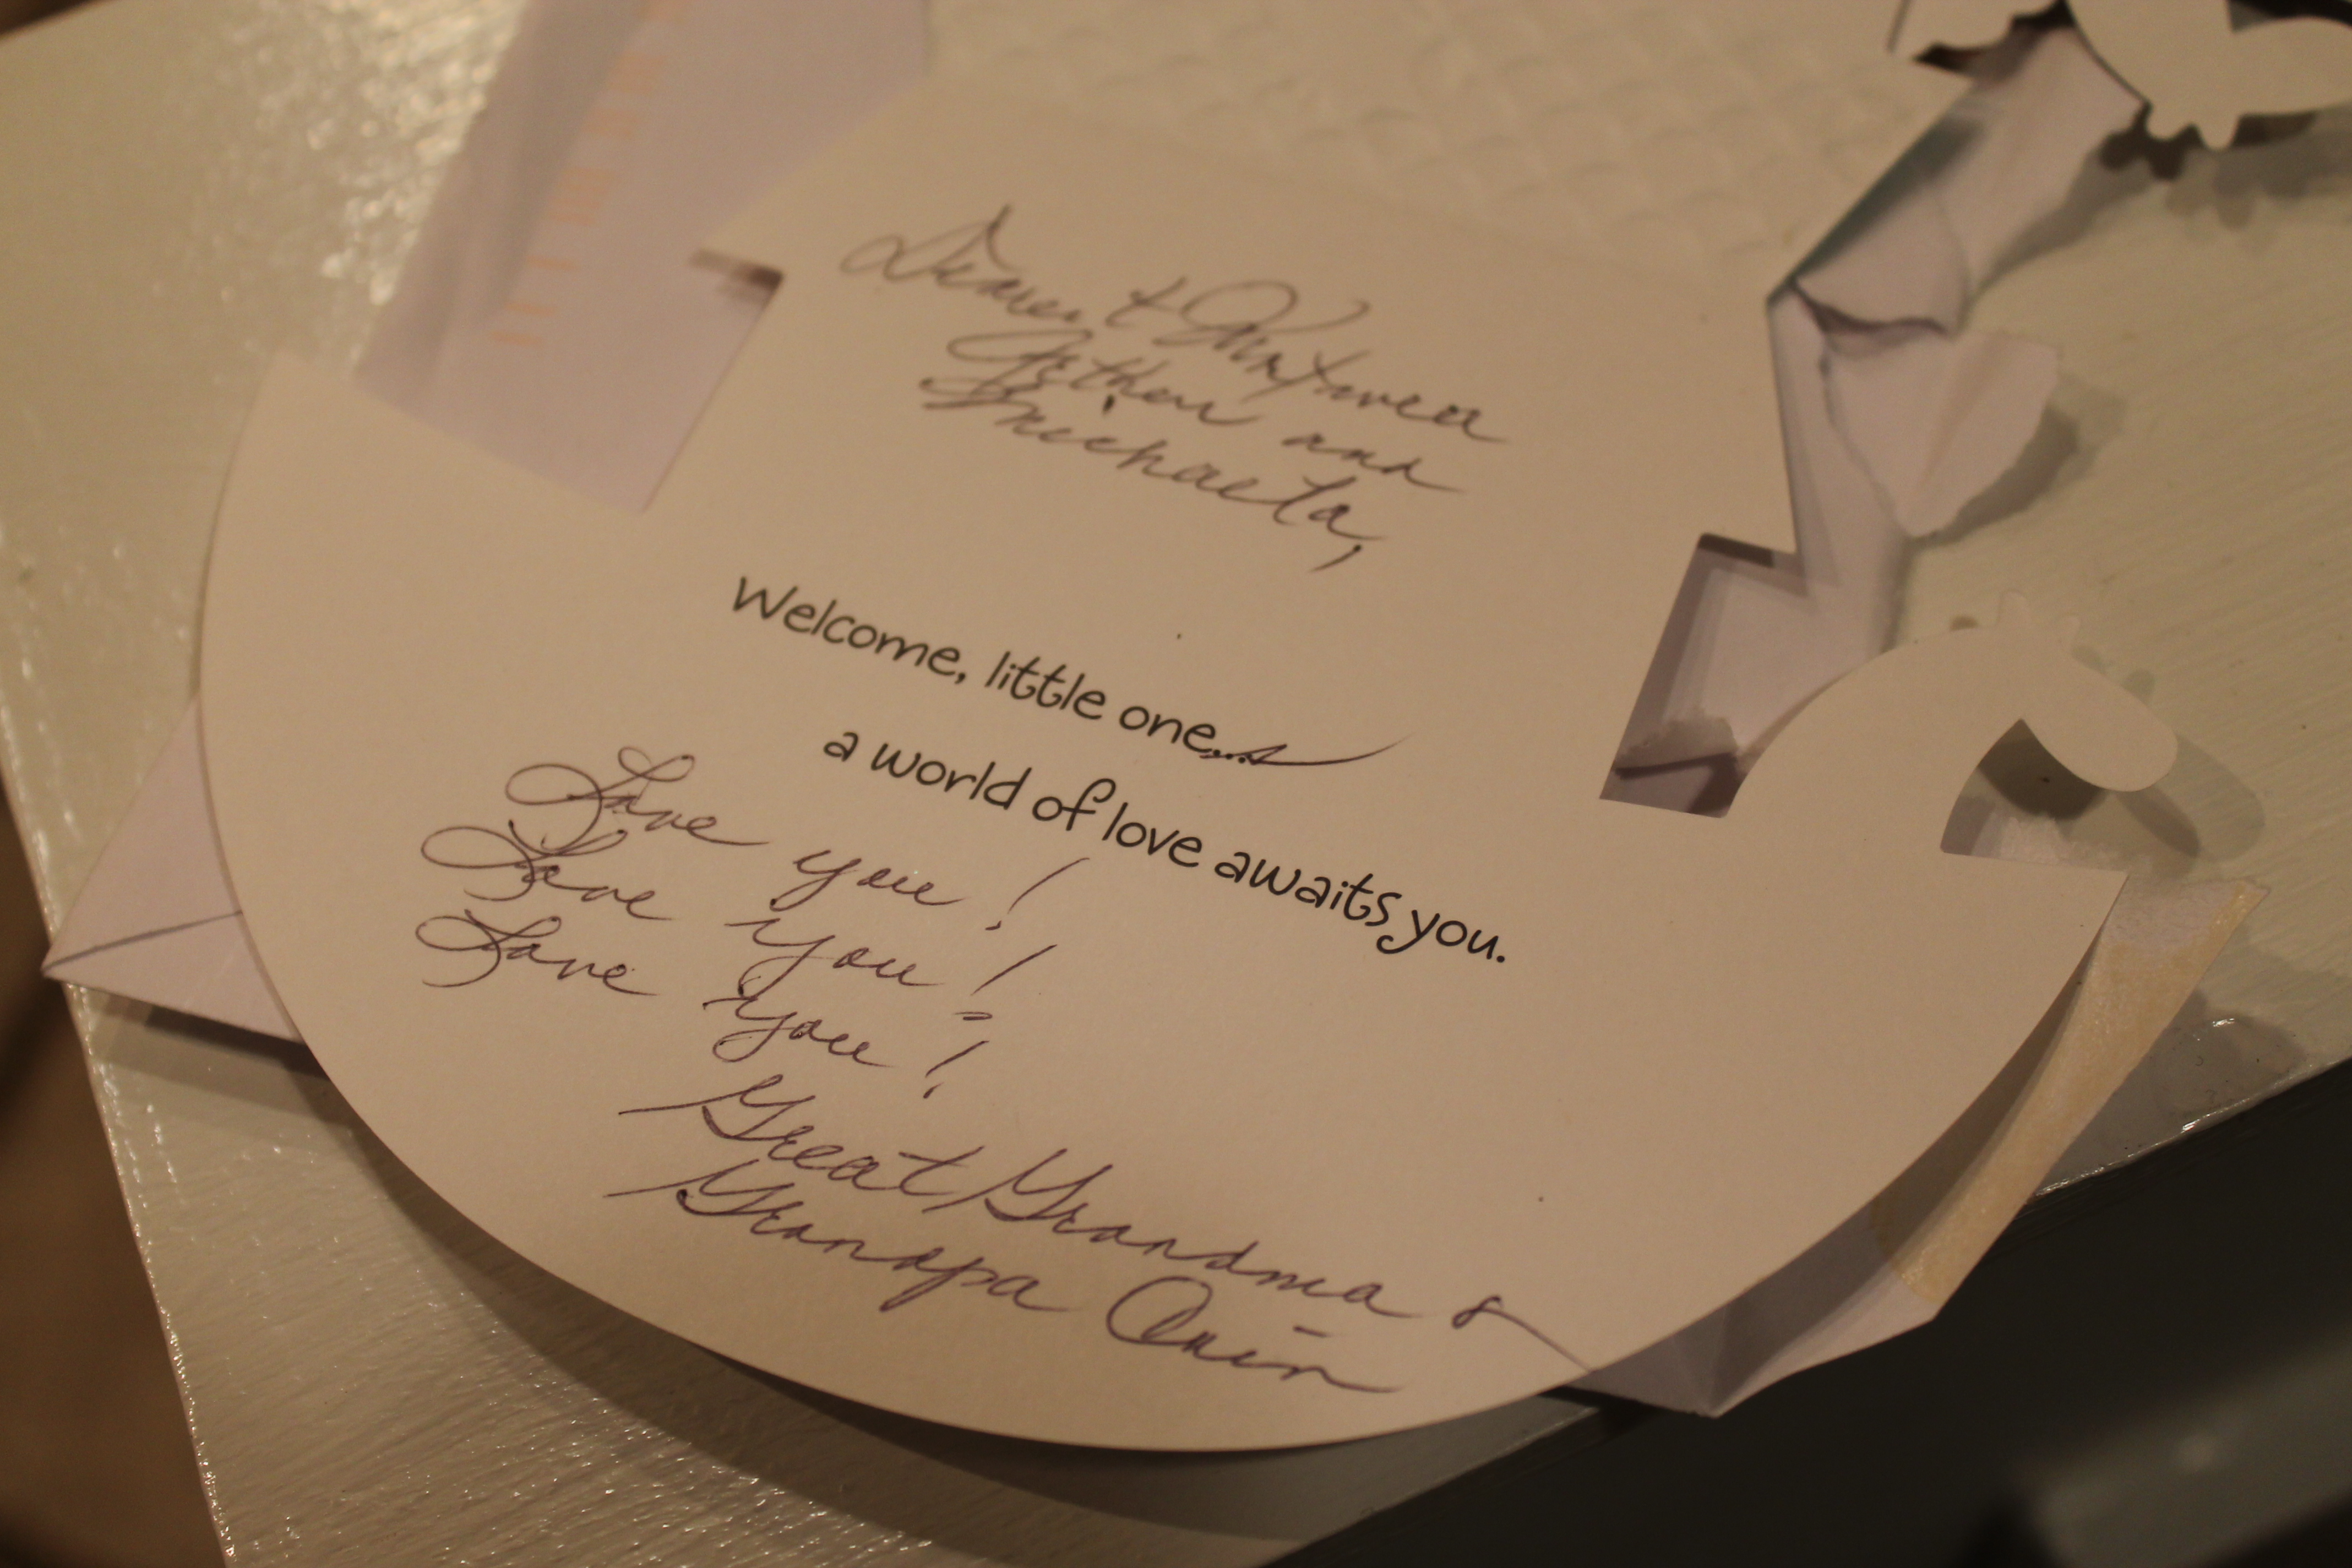 Dearest
Arthur and
Michaela,
Welcome, little one...
a world of love awaits you.
Love you!
Love you!
Love you!
Great Grandma &
Grandpa